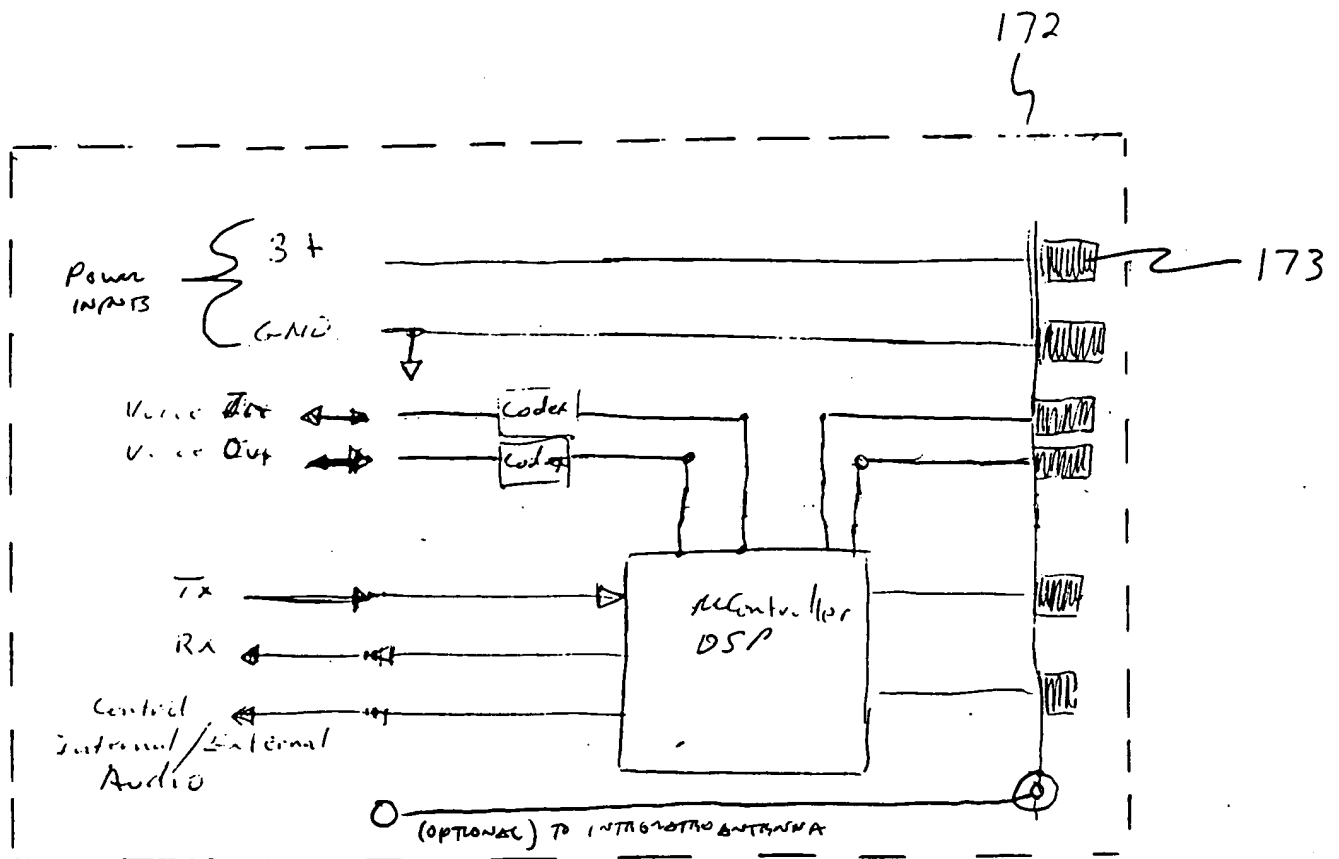 172
173
Power
INPUTS
B+
GND
Voice
Voice Out
Codec
Codec
Tx
Rx
Control
Internal/External
Audio
µController
DSP
(OPTIONAL) TO INTEGRATED ANTENNA